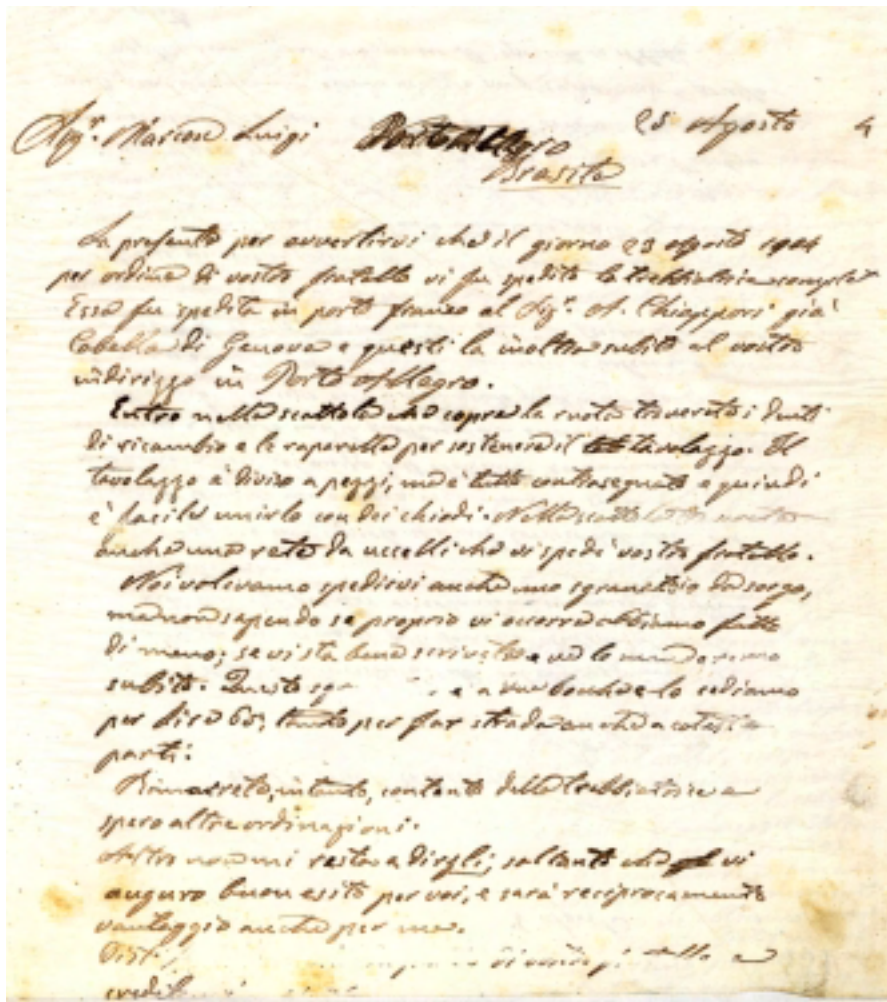 Sigr. Marcon Luigi Porto Allegro 25 Agosto 4
Brasile
La presente per avvertirvi che il giorno 23 Agosto 1904
per ordine di vostro fratello vi fu spedito la trebbiatrice
Essa fu spedita in porto franco al Sigr. A. Chiappori già
Cabella di Genova e questi la inoltra subito al vostro
indirizzo in Porto Allegro.
Entro nella scattola che copre la ruota troverete i denti
di ricambio e le per sostenere il tavolazzo. Il
tavolazzo è diviso a pezzi, ma è tutto contrasegnato e quindi
è facile unirlo con dei chiodi. Nella scattola
anche una rete da uccelli che vi spedì vostro fratello.
Noi volevamo spedirvi anche uno sgranatoio da sorgo,
ma non sapendo se proprio vi occorre abbiamo fatto
di meno; se vi sta bene e ve lo manderemo
subito. Questo e a una bocca e lo cediamo
per lire 65, tanto per far strada anche a coteste
parti.
Rimarrete, intanto, contento della trebbiatrice e
spero altre ordinazioni.
Altro non mi resta a dirgli; soltanto che vi
auguro buon esito per voi, e sarà reciprocamente
vantaggio anche per me.